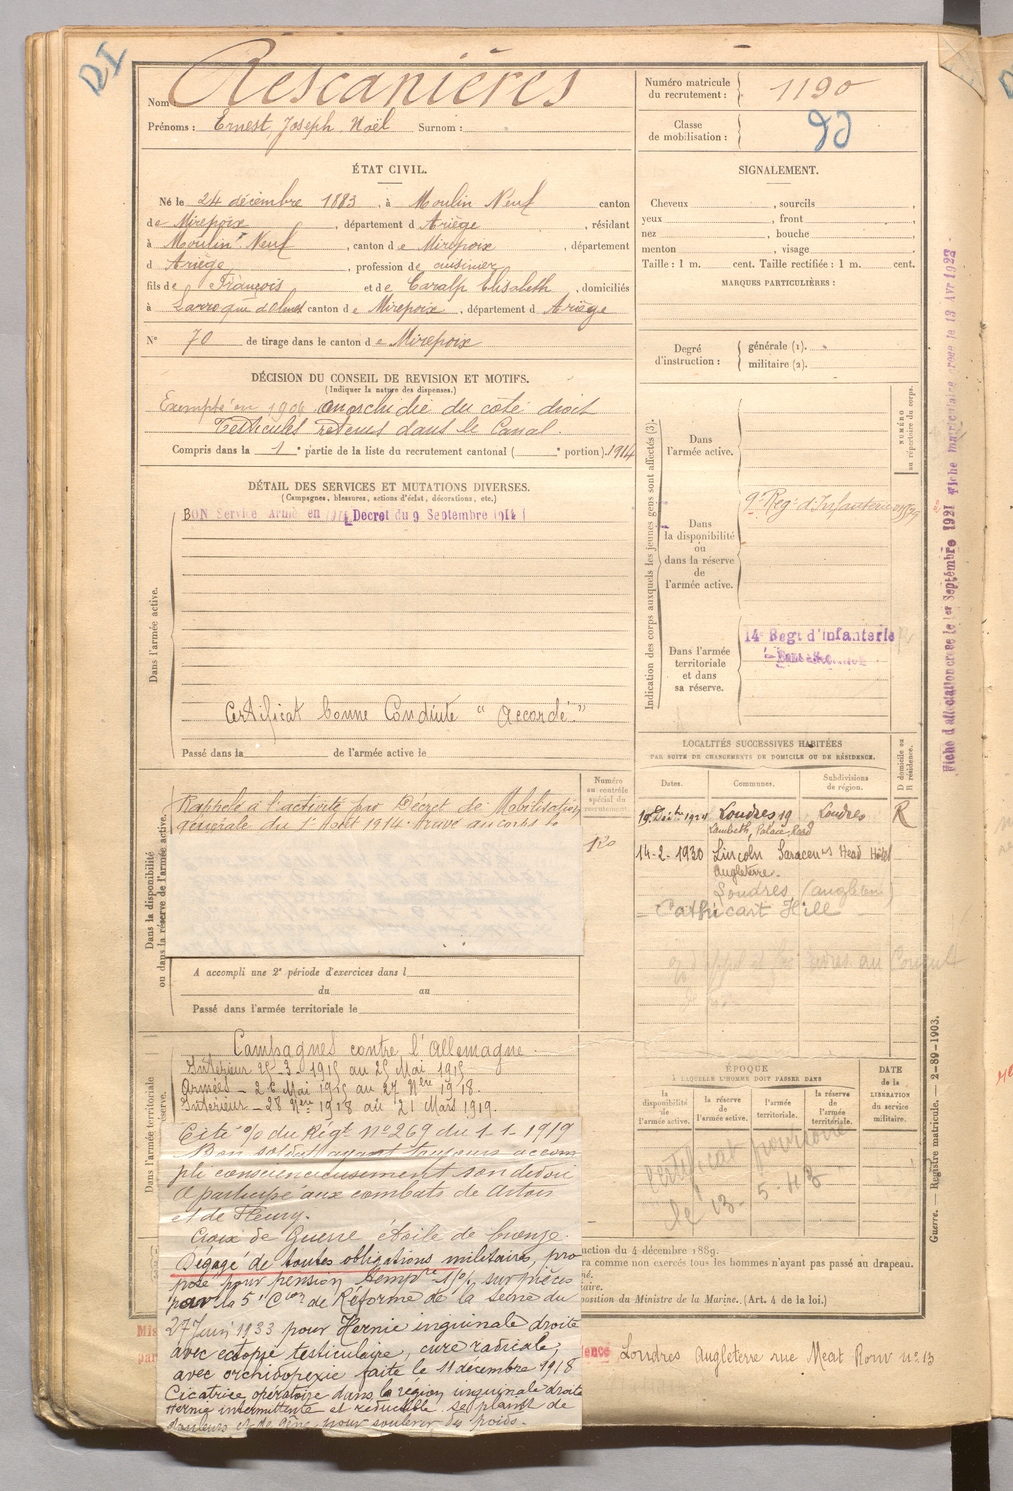 DI
Nom: Rescanières
Prénoms: Ernest, Joseph, Noël Surnom:
Numéro matricule du recrutement: 1190
Classe de mobilisation:
ÉTAT CIVIL.
Né le 24 décembre 1883, à Moulin Neuf canton
de Mirepoix, département d Ariège, résidant
à Moulin Neuf, canton de Mirepoix, département
d Ariège, profession de cuisinier
fils de François et de Caralp Elisabeth, domiciliés
à Larroque d'olmes canton de Mirepoix, département d Ariège
N° 70 de tirage dans le canton de Mirepoix
SIGNALEMENT.
Cheveux , sourcils ,
yeux , front ,
nez , bouche ,
menton , visage
Taille: 1 m. cent. Taille rectifiée: 1 m. cent.
MARQUES PARTICULIÈRES:
Degré d'instruction: générale (1). militaire (2).
DÉCISION DU CONSEIL DE REVISION ET MOTIFS.
(Indiquer la nature des dispenses.)
Exempté en 1904 anorchidie du côté droit
Testicules retenus dans le Canal.
Compris dans la 1e partie de la liste du recrutement cantonal ( e portion). 1914
DÉTAIL DES SERVICES ET MUTATIONS DIVERSES.
(Campagnes, blessures, actions d'éclat, décorations, etc.)
BON Service Armé en 1914 Decret du 9 Septembre 1914
Dans l'armée active.
Certificat bonne Conduite "Accordé"
Passé dans la de l'armée active le
Indication des corps auxquels les jeunes gens sont affectés (3).
NUMÉRO au répertoire du corps.
Dans l'armée active.
Dans la disponibilité ou dans la réserve de l'armée active.
9e Regt d'Infanterie
Dans l'armée territoriale et dans sa réserve.
14e Regt d'Infanterie
Fiche d'affectation créée le 1er Septembre 1921 Fiche matriculaire créée le 13 Avr 1922
LOCALITÉS SUCCESSIVES HABITÉES
PAR SUITE DE CHANGEMENTS DE DOMICILE OU DE RÉSIDENCE.
Dates. Communes. Subdivisions de région. D domicile ou R résidence.
19 1924 Londres 19 Londres R
Lambeth, Palace Road
14-2-1930 Lincoln Saracen's Head Hôtel
Angleterre.
Londres (angleterre)
Cathcart Hill
Dans la disponibilité ou dans la réserve de l'armée active.
Numéro au contrôle spécial du recrutement
Rappelé à l'activité par Décret de Mobilisation
générale du 1er Août 1914. Arrivé au corps le
A accompli une 2e période d'exercices dans l
du au
Passé dans l'armée territoriale le
Dans l'armée territoriale
réserve.
Campagnes contre l'Allemagne.
Intérieur 25-3-1915 au 25 Mai 1915
Armées - 26 Mai 1915 au 27 Nbre 1918.
Intérieur - 28 Nbre 1918 au 21 Mars 1919.
Cité % du Régt N° 269 du 1-1-1919
Bon soldat ayant toujours accom
pli consciencieusement son devoir
A participé aux combats de Artois
et de Fleury.
Croix de Guerre étoile de bronze.
Dégagé de toutes obligations militaires, pro
posé pour pension temp sur pièces
par la 5e Con de Réforme de la Seine du
27 Juin 1933 pour Hernie inguinale droite
avec ectopie testiculaire, cure radicale,
avec orchidopexie faite le 11 décembre 1918
Cicatrice opératoire dans la région inguinale droite
Hernie intermittente et réductible. se plaint de
douleurs et de gêne pour soulever le poids.
ÉPOQUE
À LAQUELLE L'HOMME DOIT PASSER DANS
la disponibilité de l'armée active. la réserve de l'armée active. l'armée territoriale. la réserve de l'armée territoriale.
DATE de la LIBÉRATION du service militaire.
Certificat provisoire
le 13-5-
uction du 4 décembre 1889.
ra comme non exercés tous les hommes n'ayant pas passé au drapeau.
né.
iaire.
position du Ministre de la Marine. (Art. 4 de la loi.)
Guerre. — Registre matricule. — 2-89-1903.
Londres Angleterre rue Meat Row n° 13